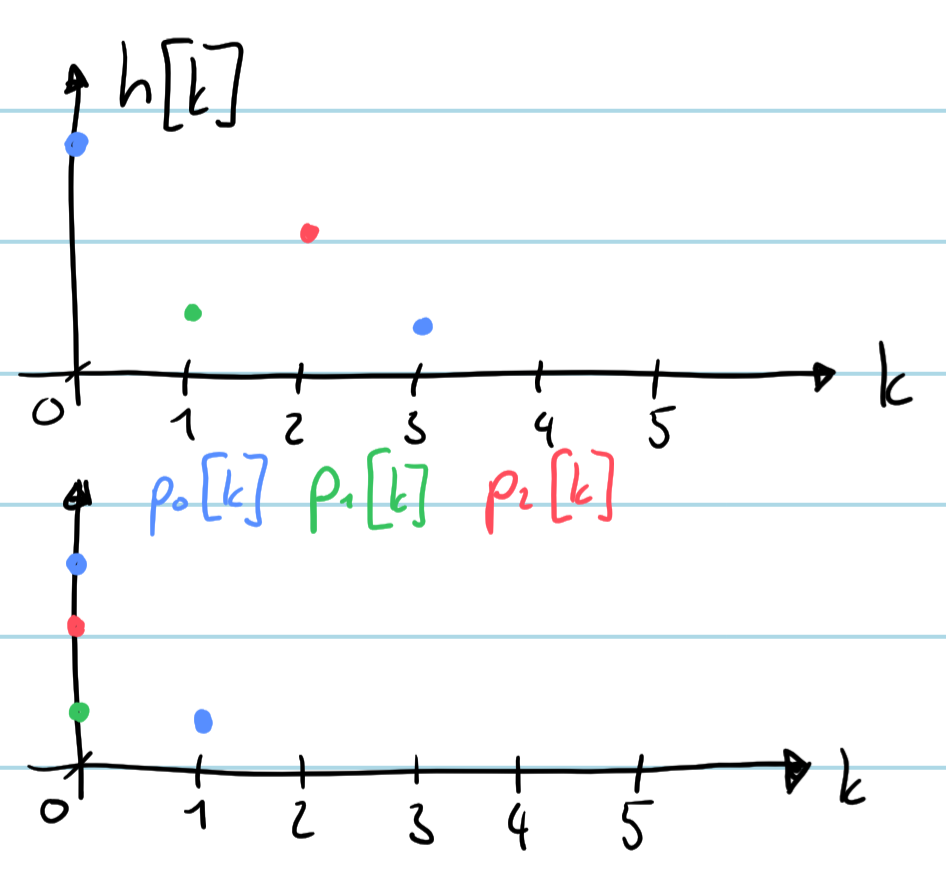 h[k]
0 1 2 3 4 5 k
p₀[k] p₁[k] p₂[k]
0 1 2 3 4 5 k